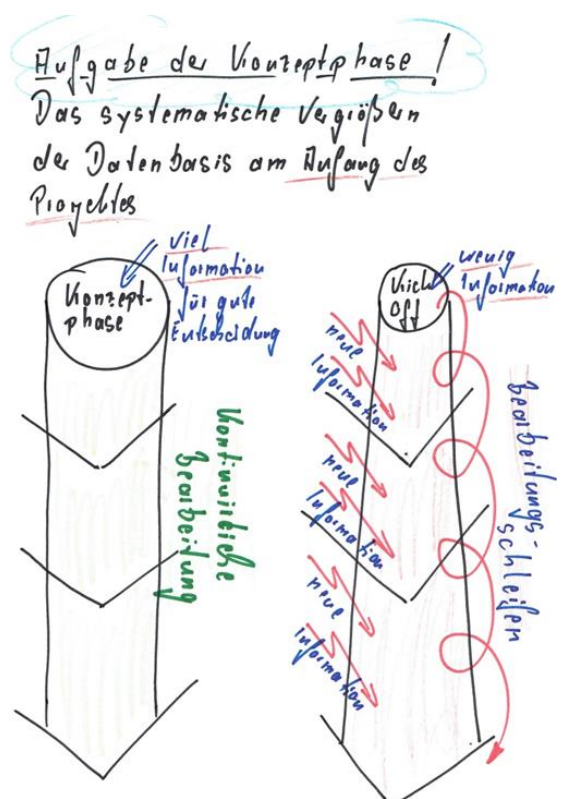 Aufgabe der Konzeptphase!
Das systematische Vergrößern
der Datenbasis am Anfang des
Projektes
viel
Information
für gute
Entscheidung
Konzept-
phase
Kontinuierliche
Bearbeitung
wenig
Information
Kick
Off
neue
Information
neue
Information
neue
Information
Bearbeitungs-
schleifen